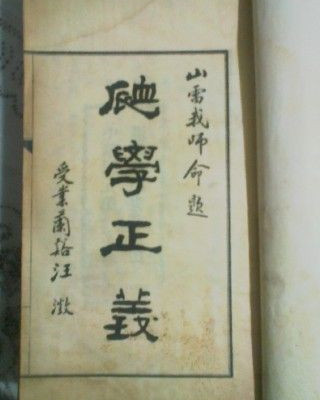 山雷我師命題
䘑學正義
受業蘭谿汪澂